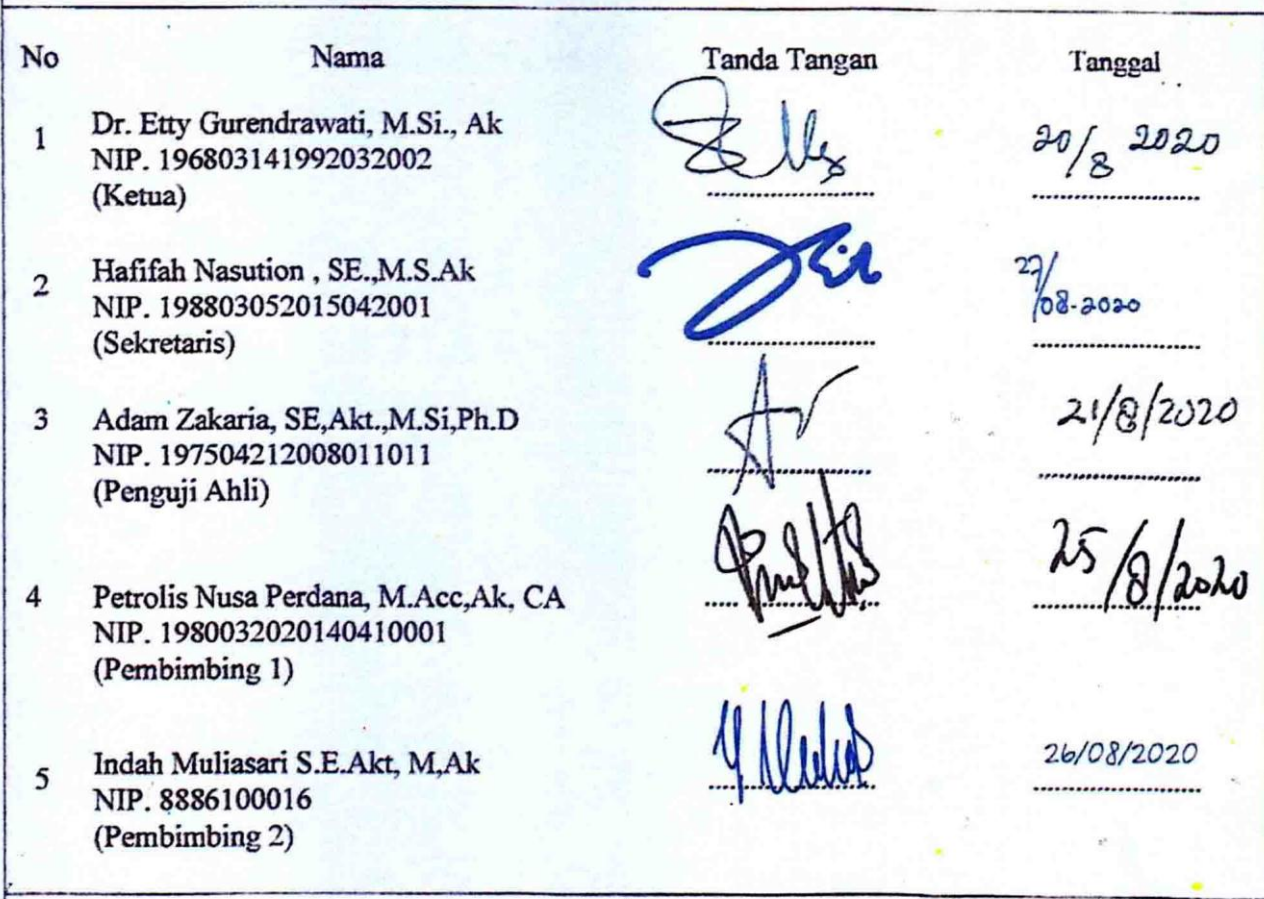 No Nama Tanda Tangan Tanggal
1 Dr. Etty Gurendrawati, M.Si., Ak
NIP. 196803141992032002
(Ketua)
20/8 2020
2 Hafifah Nasution , SE.,M.S.Ak
NIP. 198803052015042001
(Sekretaris)
27/08-2020
3 Adam Zakaria, SE,Akt.,M.Si,Ph.D
NIP. 197504212008011011
(Penguji Ahli)
21/8/2020
4 Petrolis Nusa Perdana, M.Acc,Ak, CA
NIP. 1980032020140410001
(Pembimbing 1)
25/8/2020
5 Indah Muliasari S.E.Akt, M,Ak
NIP. 8886100016
(Pembimbing 2)
26/08/2020